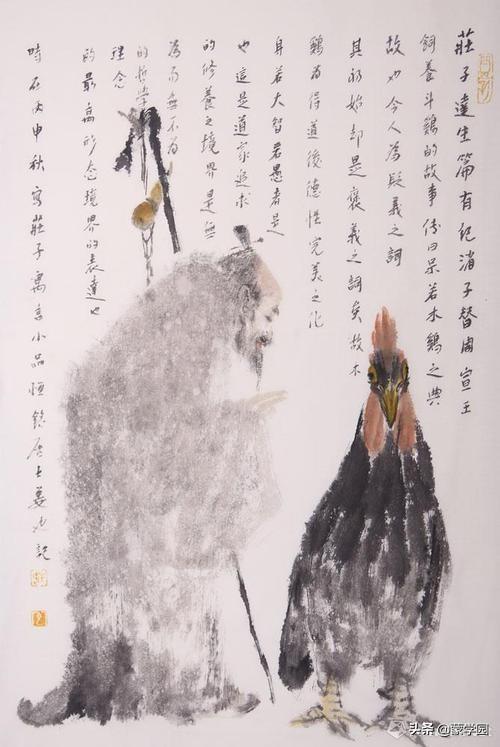 莊子達生篇有紀渻子替周宣王
飼養斗鷄的故事傳曰呆若木鷄之典
故也今人為貶義之詞
其初始却是褒義之詞矣故木
鷄為得道後德性完美之化
身若大智若愚者是
也這是道家追求
的修養之境界是無
為而無不為
的哲學
理念
的最高形态境界的表達也
時在丙申秋寫莊子寓言小品恒銘居士姜
頭条@蒙学园